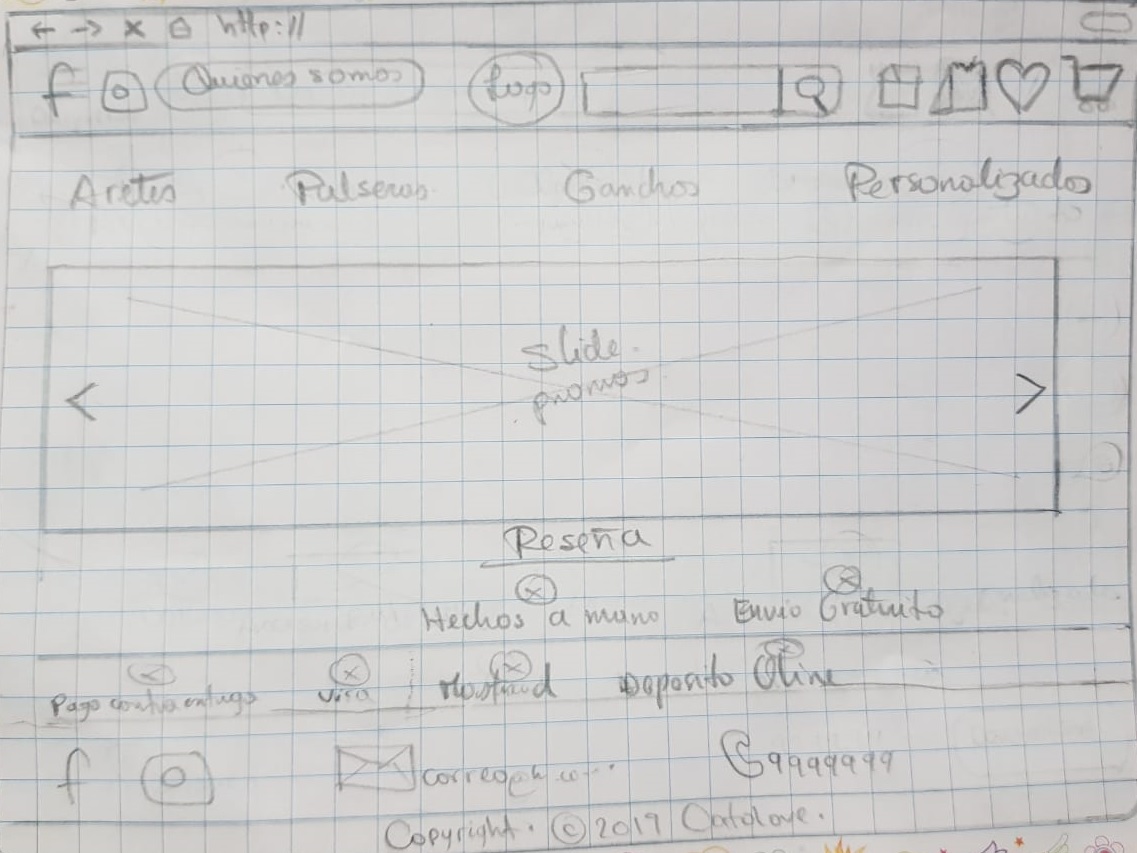 http://
f Quienes somos Logo
Aretes Pulseras Ganchos Personalizados
Slide
promos
Reseña
Hechos a mano Envio Gratuito
Pago contra entrega Visa Deposito Oline
f correo@h.co... 99999999
Copyright. © 2019 Catolove.